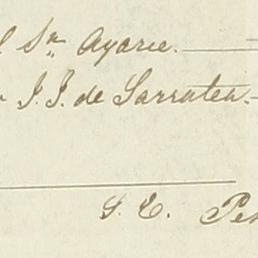 Sr. Ayarie.
J. J. de Sarratea.
S. E.